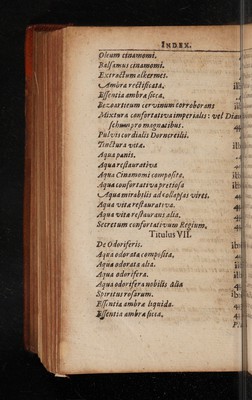 INDEX.
Oleum cinamomi.
Balsamus cinamomi.
Extractum alkermes.
Ambra rectificata.
Essentia ambra sicca.
Bezoarticum cervinum corroborans
Mixtura confortativa imperialis: vel Dian
schum pro magnatibus.
Pulvis cordialis Dorncreilii.
Tinctura vitæ.
Aqua panis.
Aqua restaurativa
Aqua Cinamomi composita.
Aqua confortativa pretiosa
Aqua mirabilis ad collapsas vires.
Aqua vitæ restaurativa.
Aqua vitæ restaurans alia.
Secretum confortativum Regium.
Titulus VII.
De Odoriferis.
Aqua odorata composita.
Aqua odorata alia.
Aqua odorifera.
Aqua odorifera nobilis alia
Spiritus rosarum.
Essentia ambræ liquida.
Essentia ambræ sicca.